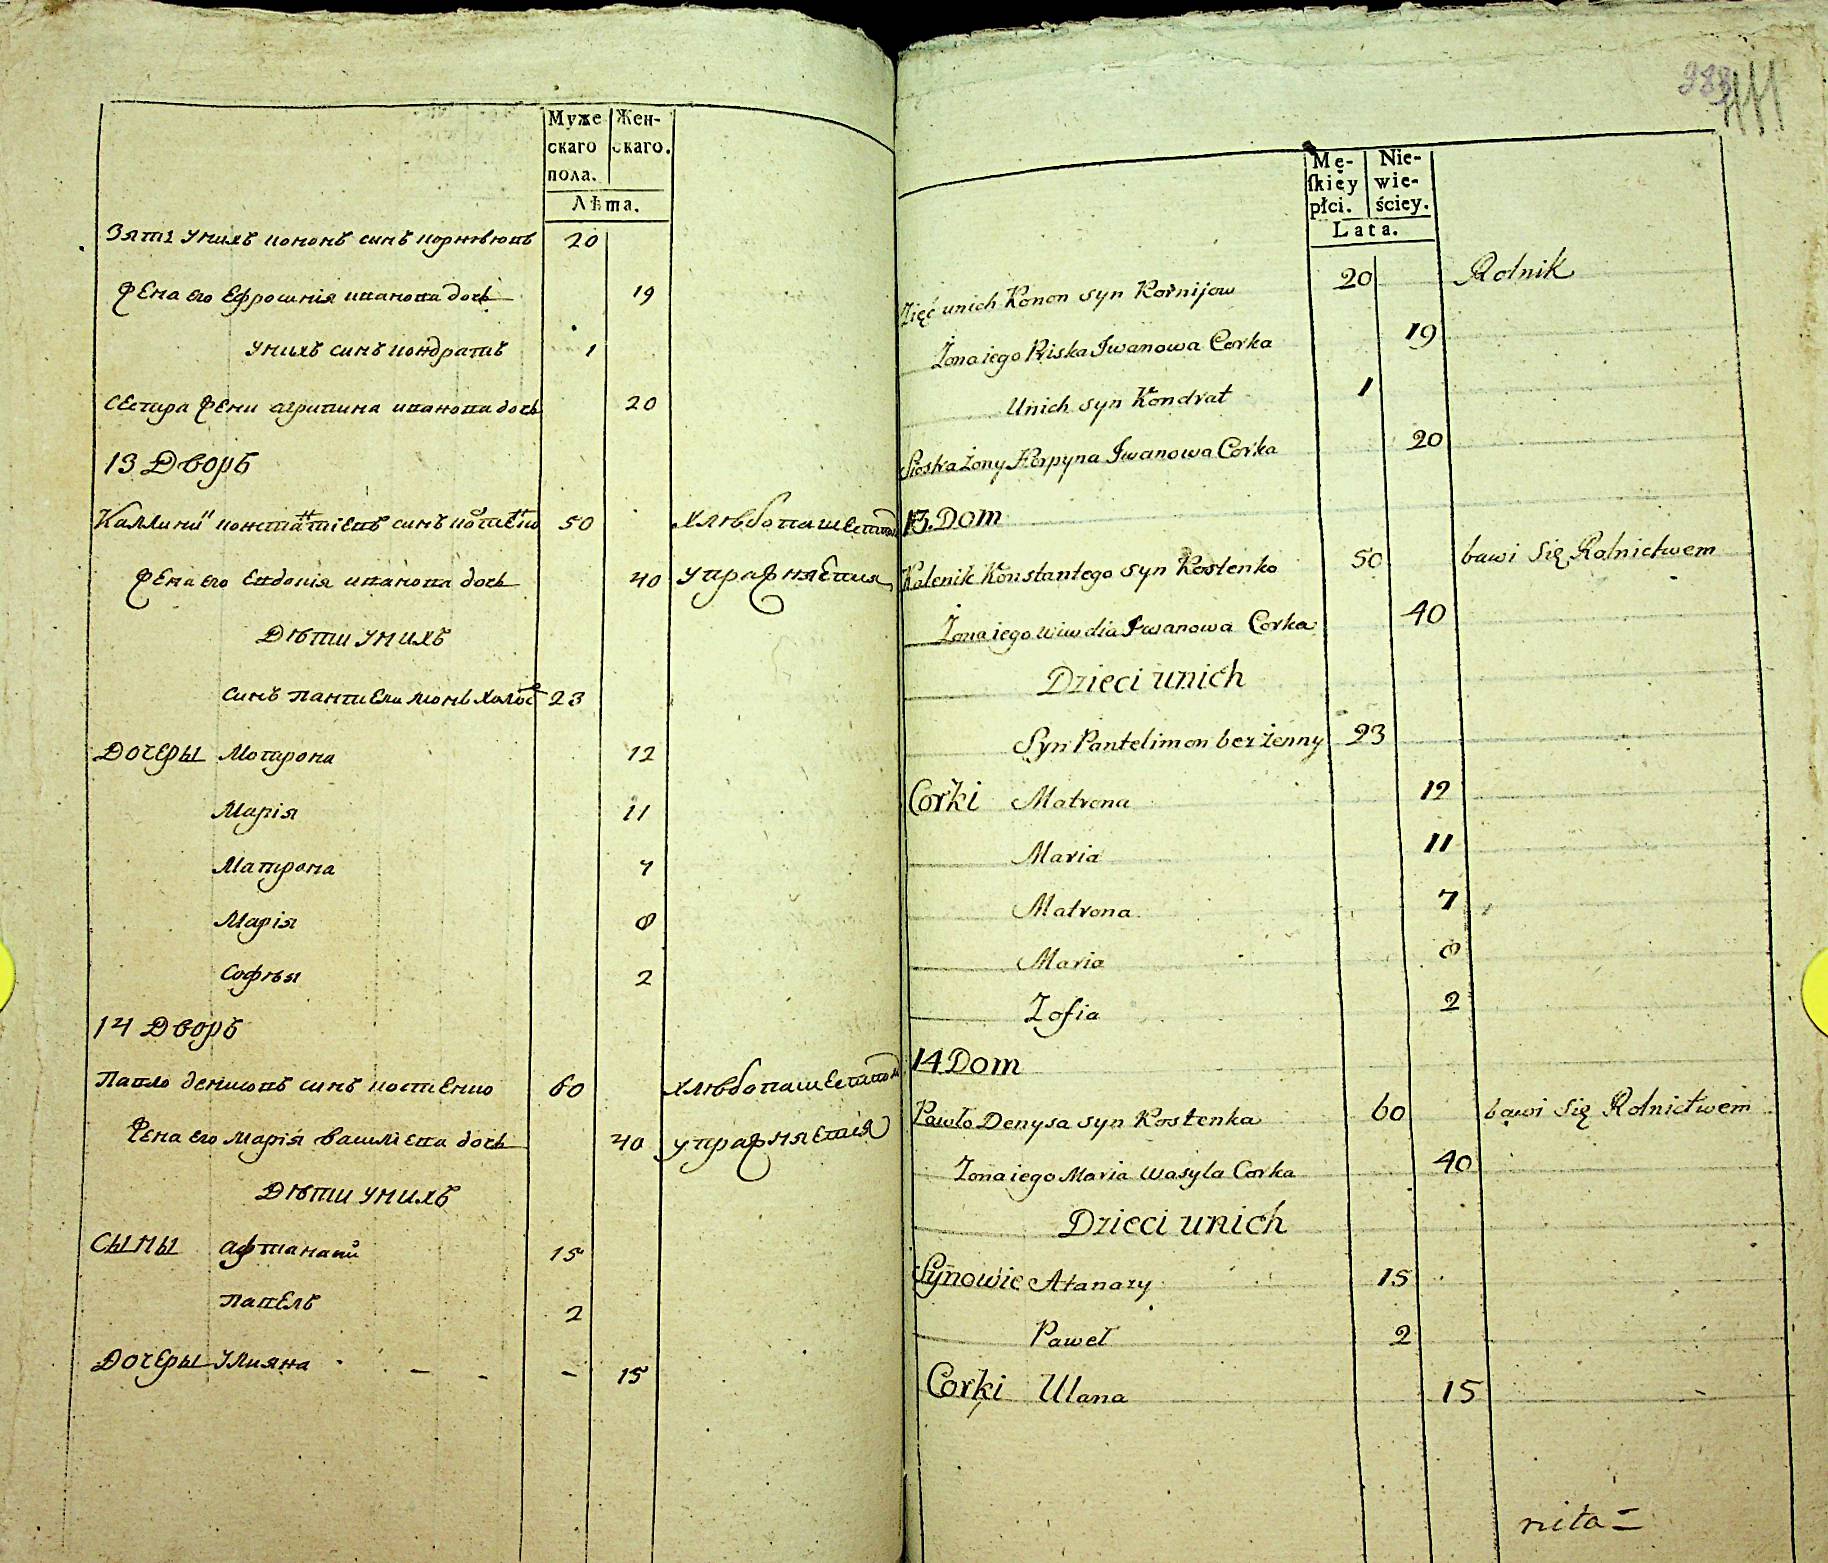 Муже Жен-
скаго скаго.
пола.
Лѣта.
Зять унихъ кононъ синъ корнѣювъ 20
Жена его Ефросинія иванова дочь 19
унихъ синъ кондратъ 1
сестра жени агрипина иванова дочь 20
13 Дворъ
Каллиникъ синъ 50 хлѣбопашествомъ
Жена его Евдокія иванова дочь 40 упражняется
Дѣти унихъ
синъ пантиелимонъ холос 23
Дочеры Мотрона 12
Марія 11
Матрона 7
Марія 8
Софѣя 2
14 Дворъ
павло денисовъ синъ костенко 60 хлѣбопашествомъ
Жена его марія василіева дочь 40 упражняется
Дѣти унихъ
сыны афтанасий 15
павелъ 2
Дочеры улияна - - - 15
983
Mę- Nie-
ſkiey wie-
płci. ściey.
Lata.
Zięć unich Konon syn Kornijow 20 Rolnik
Żona iego Priska Jwanowa Corka 19
Unich syn Kondrat 1
Siostra żony Horpyna Jwanowa Corka 20
13. Dom
Kalenik Konstantego syn Kostenko 50 bawi się Rolnictwem
Żona iego wiwdia Jwanowa Corka 40
Dzieci unich
Syn Pantelimon bezżenny 23
Corki Matrona 12
Maria 11
Matrona 7
Maria 8
Zofia 2
14 Dom
Pawło Denysa syn Kostenka 60 bawi się Rolnictwem
Żona iego Maria Wasyla Corka 40
Dzieci unich
Synowie Atanazy 15
Paweł 2
Corki Ulana 15